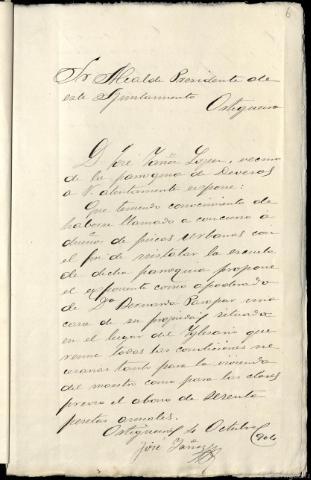 6
Sr Alcalde Presidente de
este Ayuntamiento
Ortigueira
D. José Yáñez, vecino
de la parroquia de Devesos
a V. atentamente expone:
Que teniendo conocimiento de
haberse llamado a concurso á
dueños de fincas urbanas con
el fin de reinstalar la escuela
de dicha parroquia propone
el exponente como apoderado
de Dn Bernardo una
casa de su propiedad situada
en el lugar del Yglesario que
reune todas las condiciones ne
cesarias tanto para la vivienda
del maestro como para las clases
previo el abono de sesenta
pesetas anuales.
Ortigueira de Octubre
José Yáñez